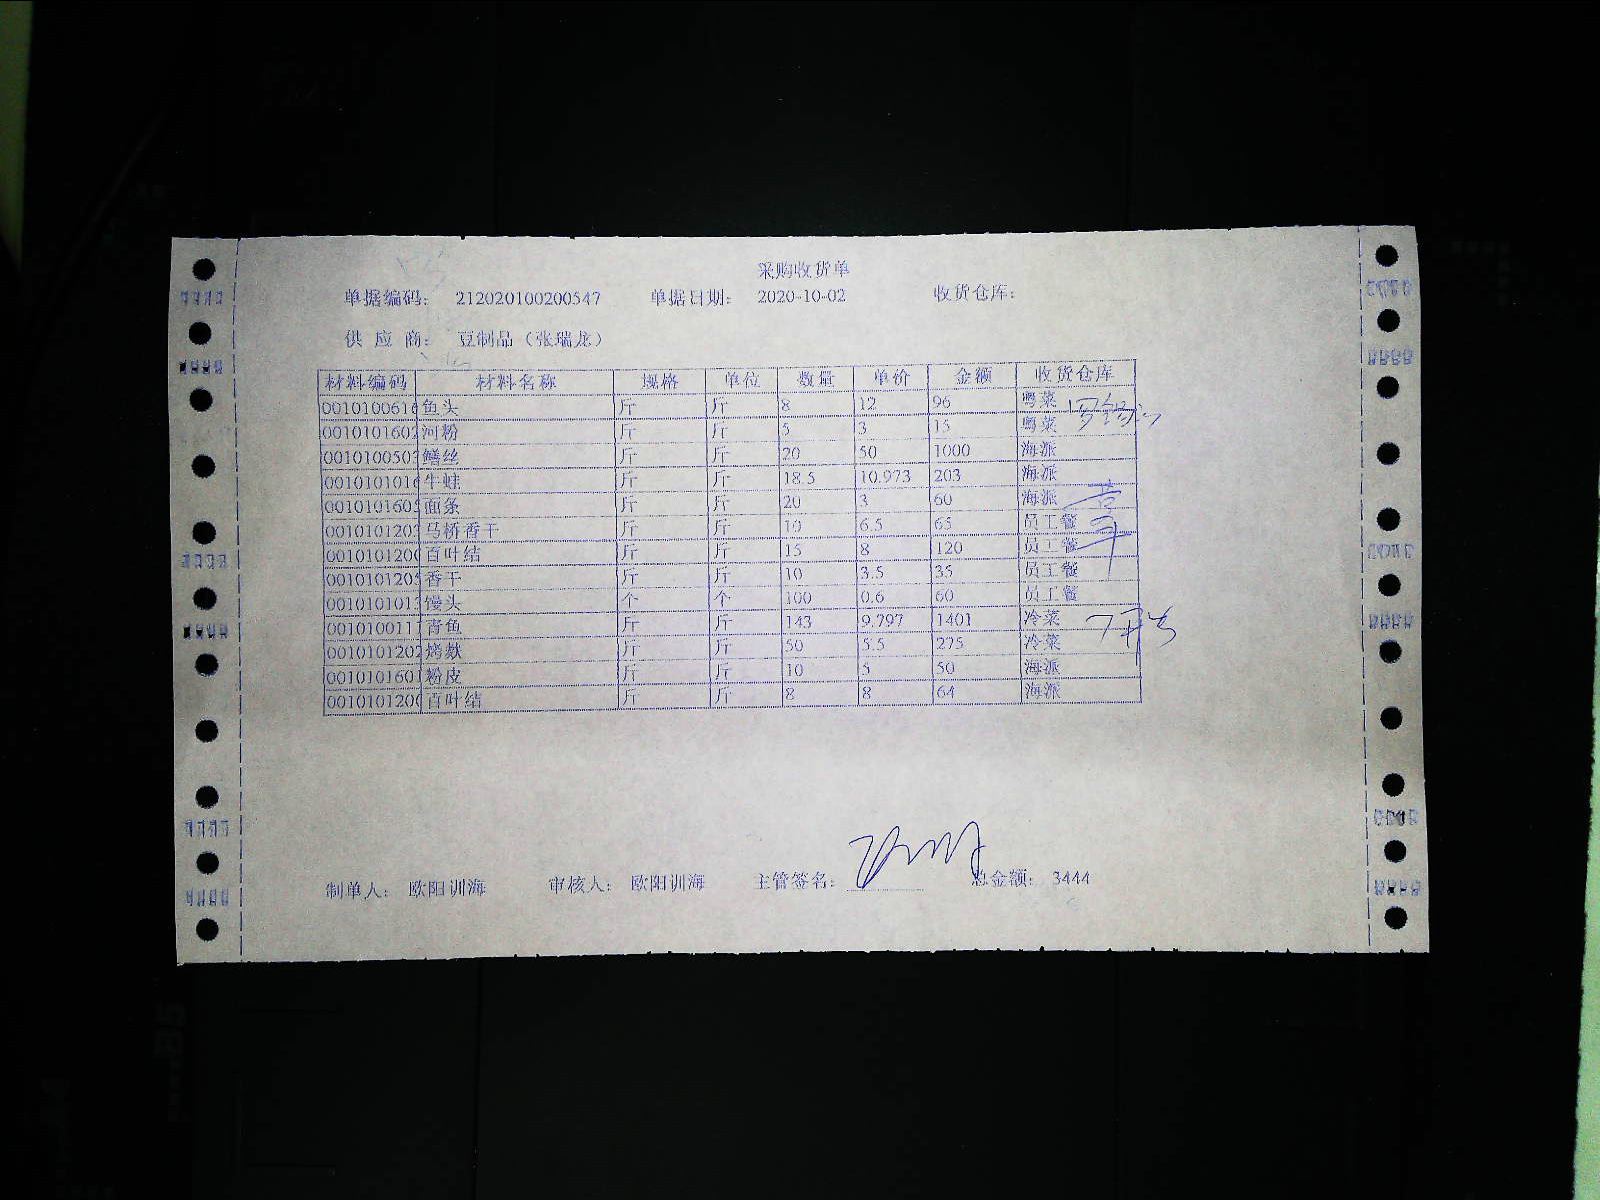 采购收货单
单据编码： 212020100200547 单据日期： 2020-10-02 收货仓库：
供 应 商： 豆制品（张瑞龙）
材料编码 材料名称 规格 单位 数量 单价 金额 收货仓库
0010100616 鱼头 斤 斤 8 12 96 粤菜
0010101602 河粉 斤 斤 5 3 15 粤菜
0010100503 鳝丝 斤 斤 20 50 1000 海派
0010101016 牛蛙 斤 斤 18.5 10.973 203 海派
0010101605 面条 斤 斤 20 3 60 海派
0010101203 马桥香干 斤 斤 10 6.5 65 员工餐
0010101200 百叶结 斤 斤 15 8 120 员工餐
0010101205 香干 斤 斤 10 3.5 35 员工餐
0010101013 馒头 个 个 100 0.6 60 员工餐
0010100111 青鱼 斤 斤 143 9.797 1401 冷菜
0010101202 烤麸 斤 斤 50 5.5 275 冷菜
0010101601 粉皮 斤 斤 10 5 50 海派
0010101200 百叶结 斤 斤 8 8 64 海派
制单人： 欧阳训海 审核人： 欧阳训海 主管签名： 总金额： 3444